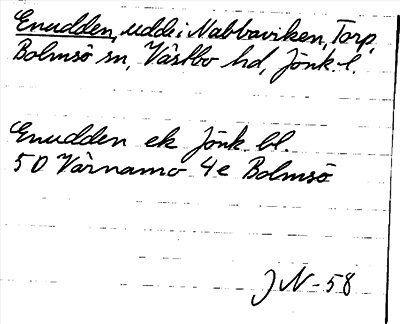 Enudden, udde i Nabbaviken, Torp,
Bolmsö sn, Västbo hd, Jönk. l.
Enudden ek Jönk. bl.
5D Värnamo 4e Bolmsö
JN-58